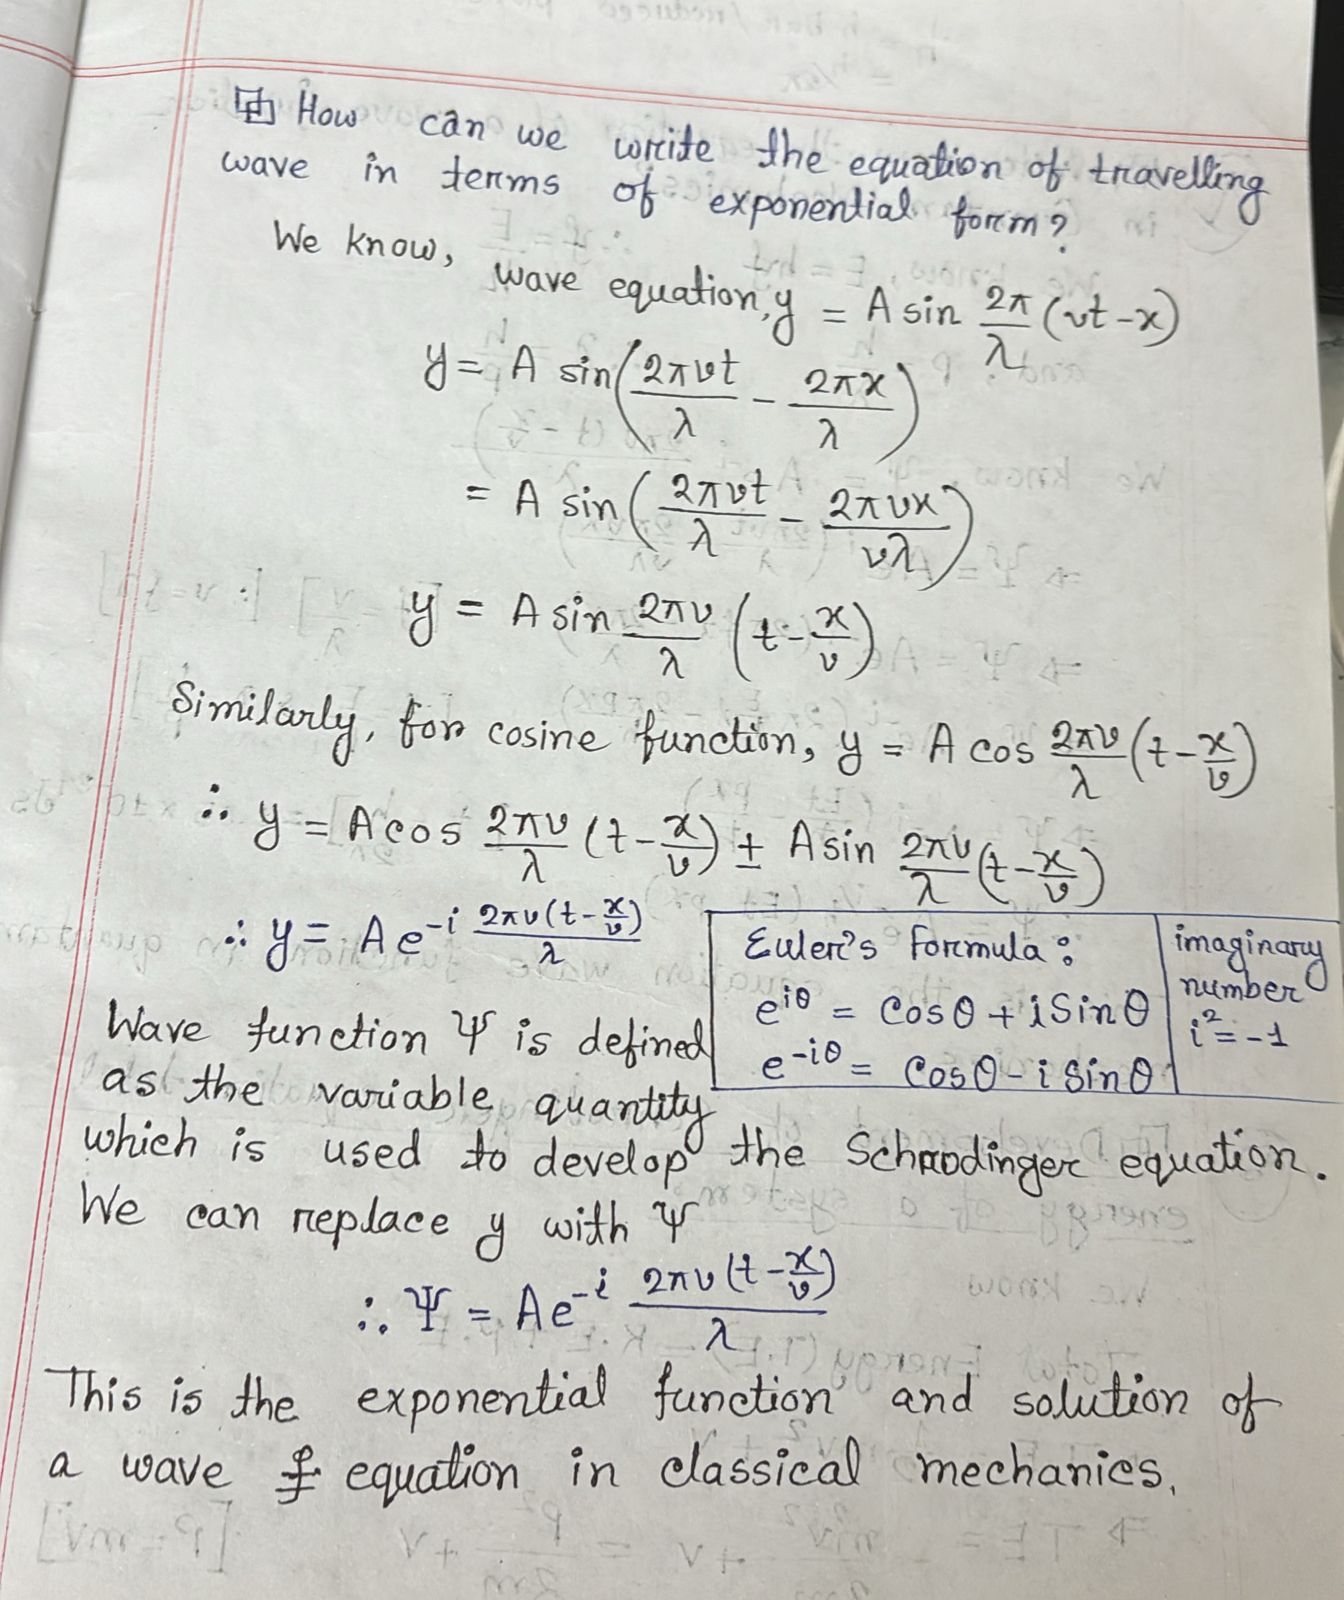 How can we write the equation of travelling
wave in terms of exponential form?
We know, wave equation, y = A sin 2π/λ (vt - x)
y = A sin(2πvt/λ - 2πx/λ)
= A sin(2πvt/λ - 2πvx/vλ)
y = A sin 2πv/λ (t - x/v)
Similarly, for cosine function, y = A cos 2πv/λ (t - x/v)
∴ y = A cos 2πv/λ (t - x/v) ± A sin 2πv/λ (t - x/v)
∴ y = A e^(-i 2πv(t - x/v)/λ)
Euler's Formula :
e^(iθ) = Cosθ + i Sinθ
e^(-iθ) = Cosθ - i Sinθ
imaginary
number
i² = -1
Wave function Ψ is defined
as the variable quantity
which is used to develop the Schrodinger equation.
We can replace y with Ψ
∴ Ψ = A e^(-i 2πv(t - x/v)/λ)
This is the exponential function and solution of
a wave equation in classical mechanics.